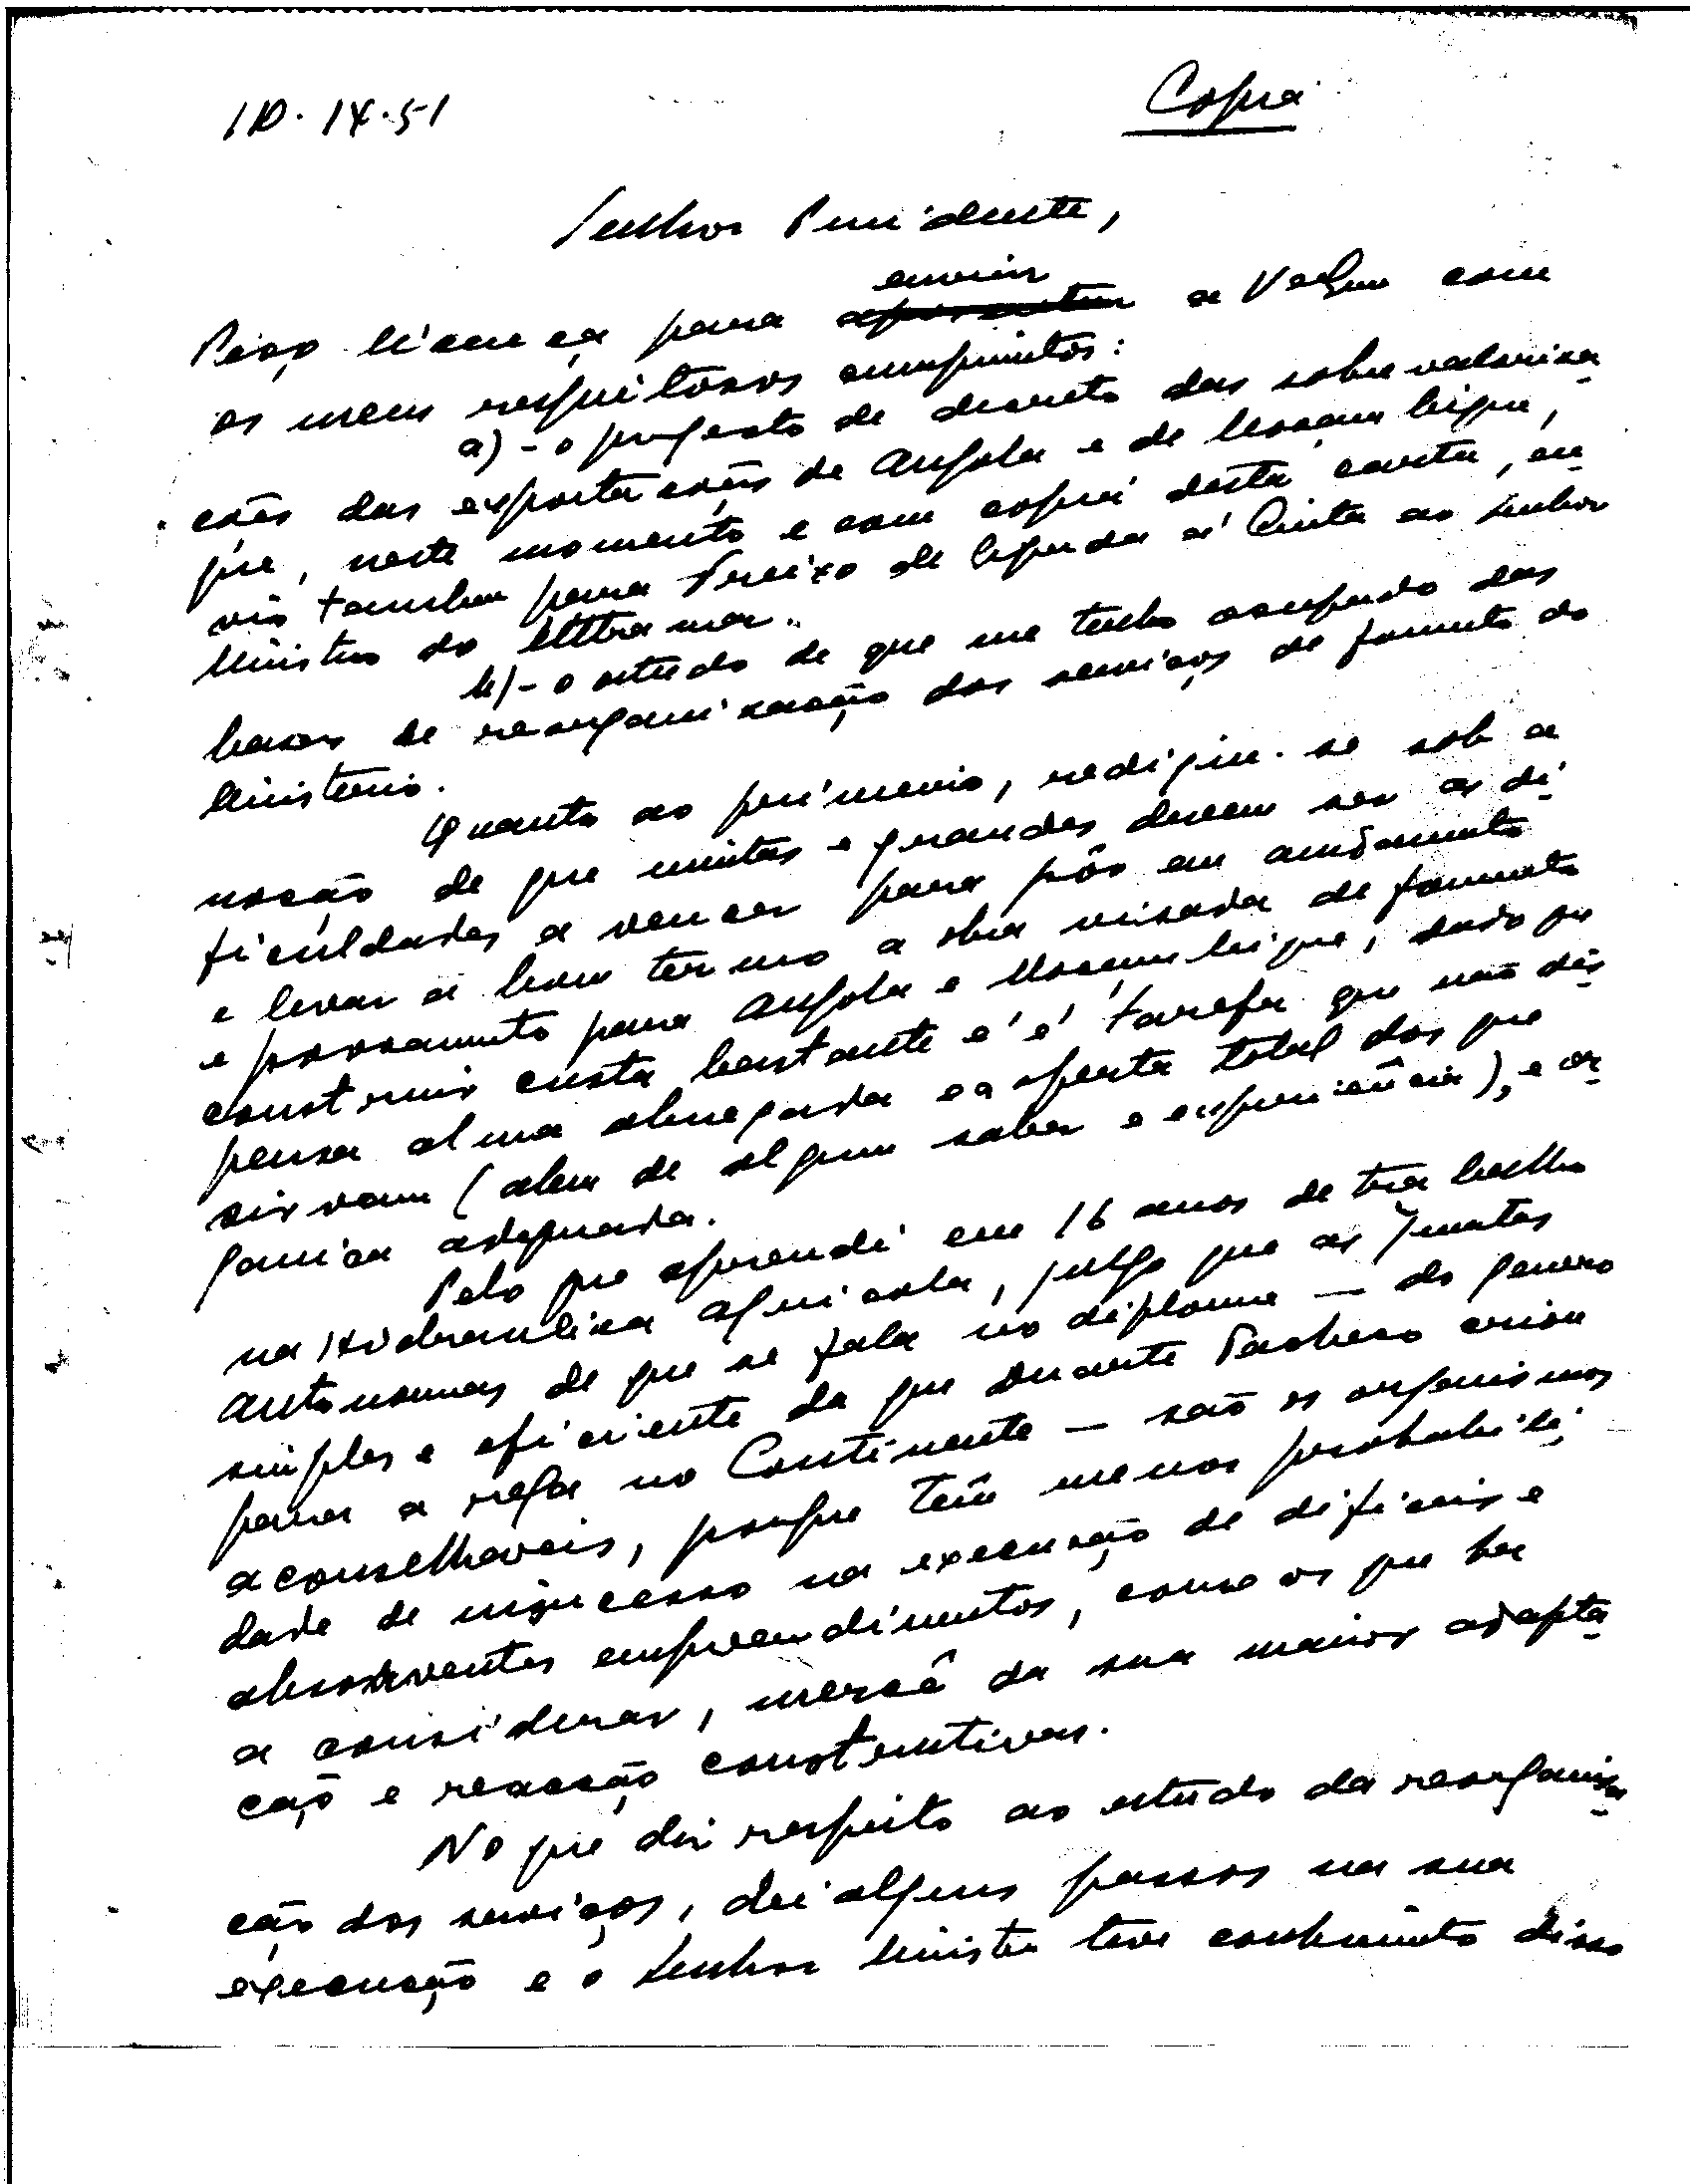 10.14.51
Copia
Senhor Presidente,
enviar
Peço licença para apresentar a V. Exa. com
os meus respeitosos cumprimentos:
a) - o projecto de decreto das sobrevaloriza
ções das exportações de Angola e de Moçambique,
que, neste momento e com copia desta carta, en
vio tambem para Freixo de Espada à Cinta ao Senhor
Ministro do Ultramar.
b) - o estudo de que me tenho ocupado das
bases de reorganização dos serviços de fomento do
Ministerio.
Quanto ao primeiro, redigiu-se sob a
noção de que muitas e grandes devem ser as di
ficuldades a vencer para pôr em andamento
e levar a bom termo a obra visada de fomento
e povoamento para Angola e Moçambique, dado que
construir custa bastante e é tarefa que não dis
pensa alma abnegada e a oferta total dos que
sirvam (alem de algum saber e experiência), e or
ganica adequada.
Pelo que aprendi em 16 anos de trabalho
na Hidraulica Agricola, julgo que as Juntas
Autonomas de que se fala no diploma — do genero
simples e eficiente da que Duarte Pacheco criou
para a rega no Continente — são os organismos
aconselhaveis, porque têm menos probabili
dade de insucesso na execução de dificeis e
absorventes empreendimentos, como os que ha
a considerar, mercê da sua maior adapta
ção e reacção construtivas.
No que diz respeito ao estudo da reorganiza
ção dos serviços, dei alguns passos na sua
execução e o Senhor Ministro teve conhecimento disso